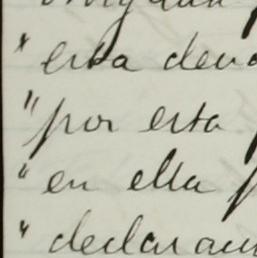 " esta deu
" por esta
" en ella p
" declaram